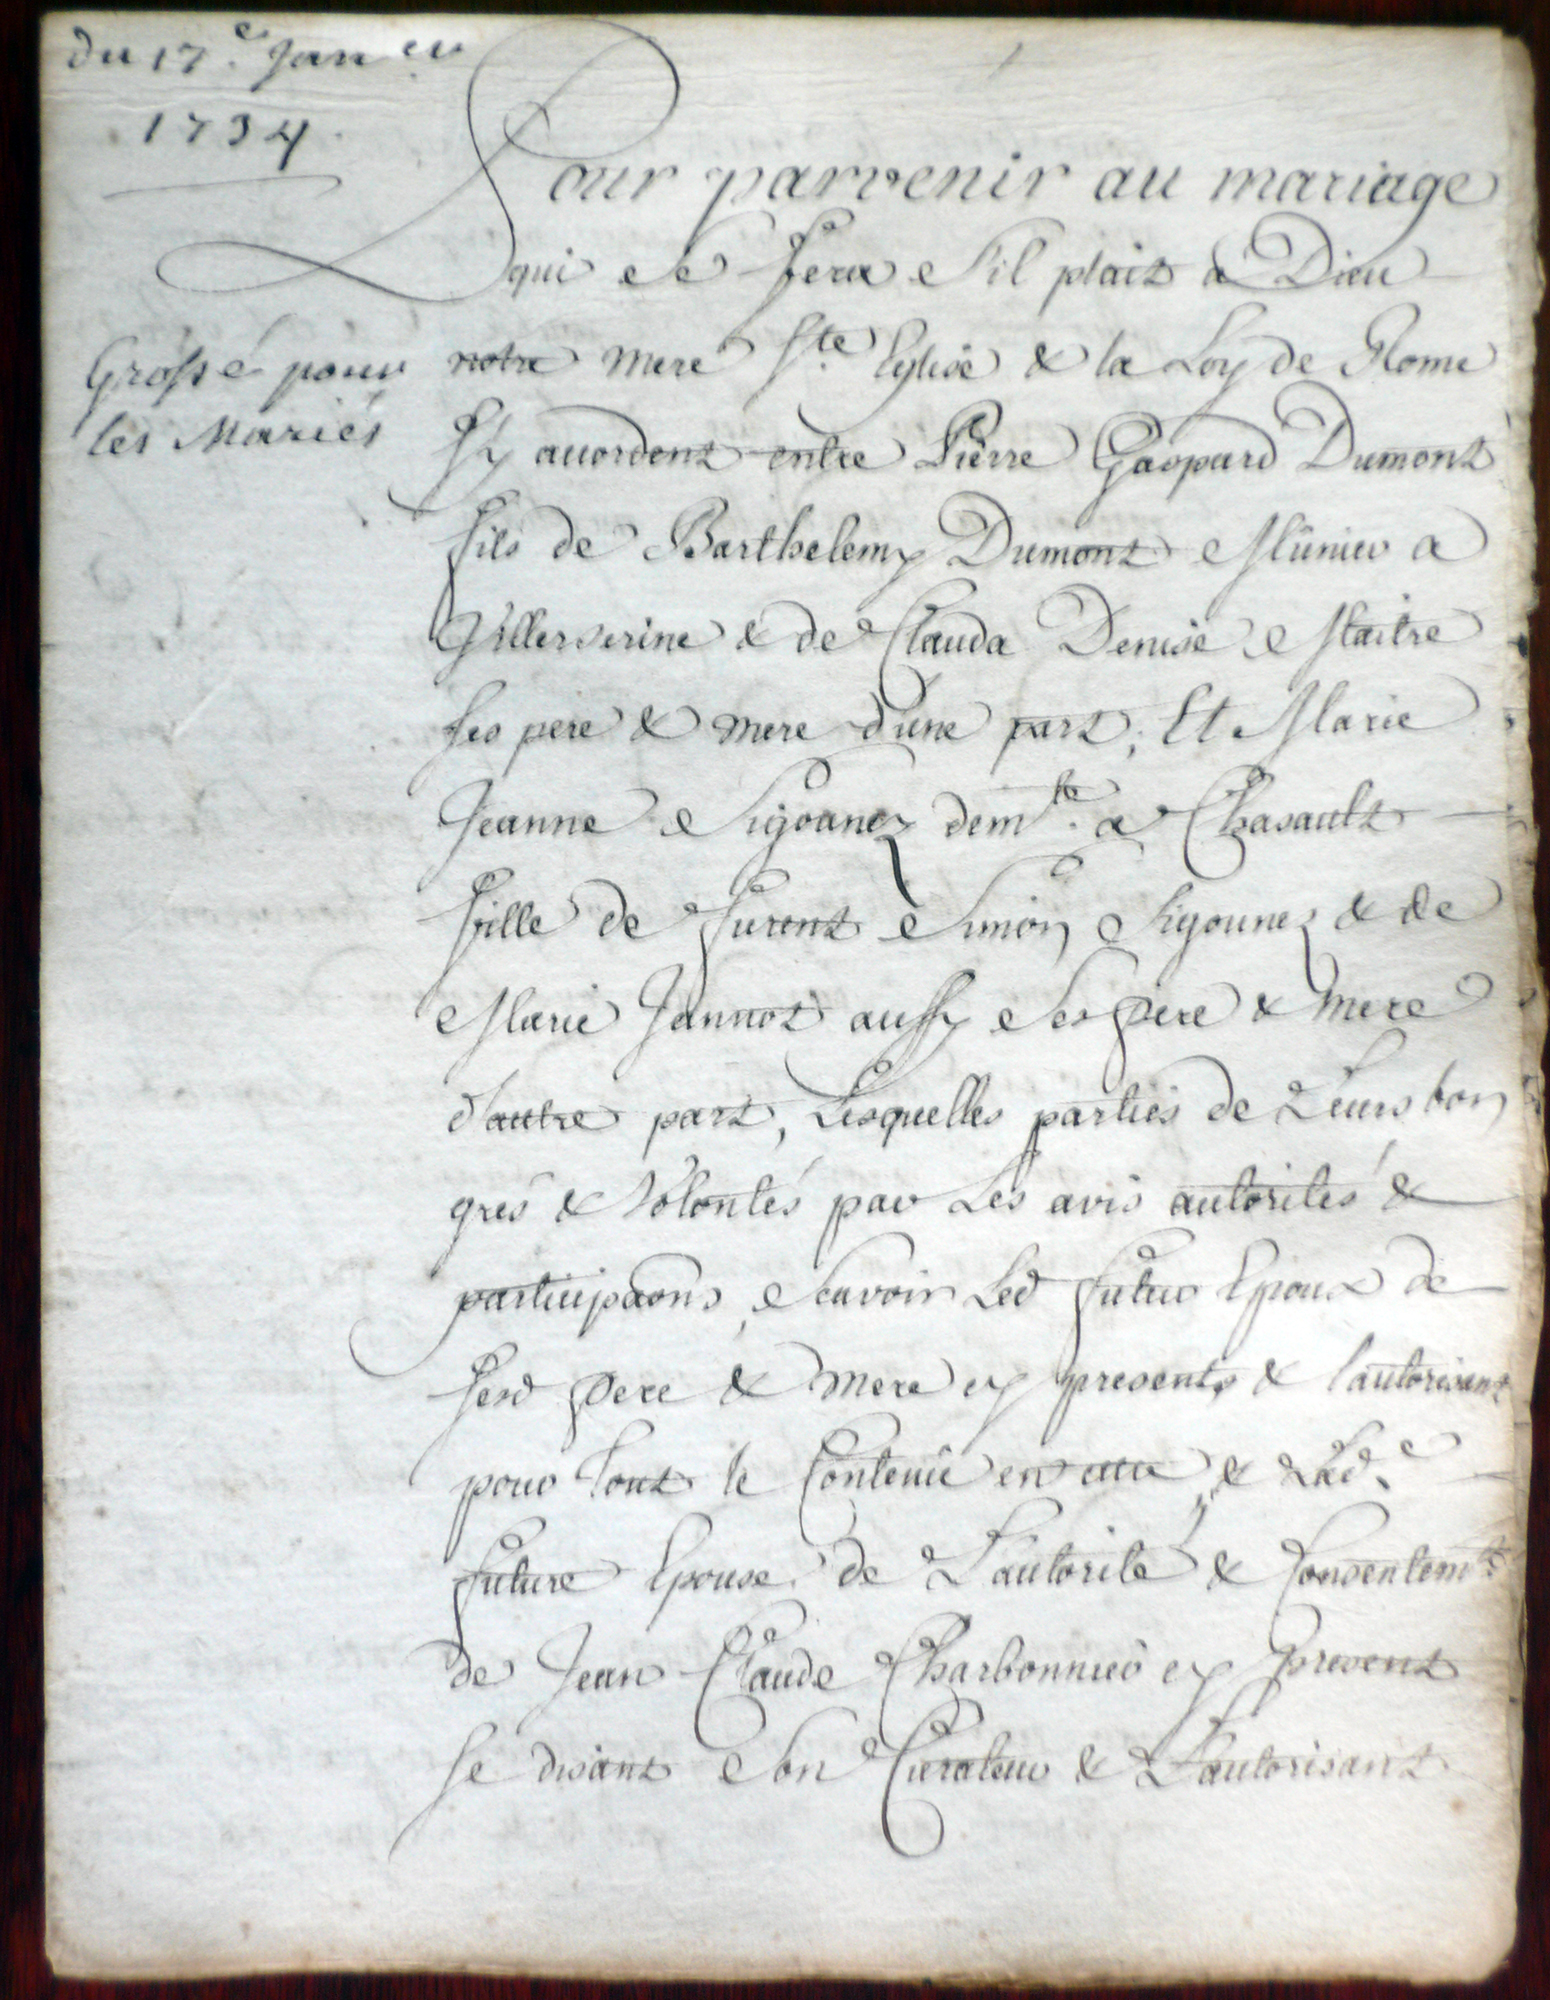 du 17.e Janer
1734
Pour parvenir au mariage
qui se fera s'il plait a Dieu
Grossé pour
les Mariés
notre mere Ste Eglise & la Loy de Rome
Sy accordent entre Pierre Gaspard Dumont
fils de Barthelemy Dumont Mûnier a
Villerserine & de Clauda Denise Maitre
ses pere & mere d'une part, Et Marie
Jeanne Sigonney demte a Chasault
fille de furent Simon Sigouney & de
Marie Jannot aussy ses pere & mere
d'autre part, Lesquelles parties de Leurs bon
grés & Volontés par Les avis autorités &
participaons, Scavoir Led futur Epoux de
sesd pere & mere cy presents & l'autorisant
pour tout le Contenû en cette & Lad.e
future Epouse de L'autorité & Consentemt
de Jean Claude Charbonnier cy present
se disant Son Curateur & L'autorisant